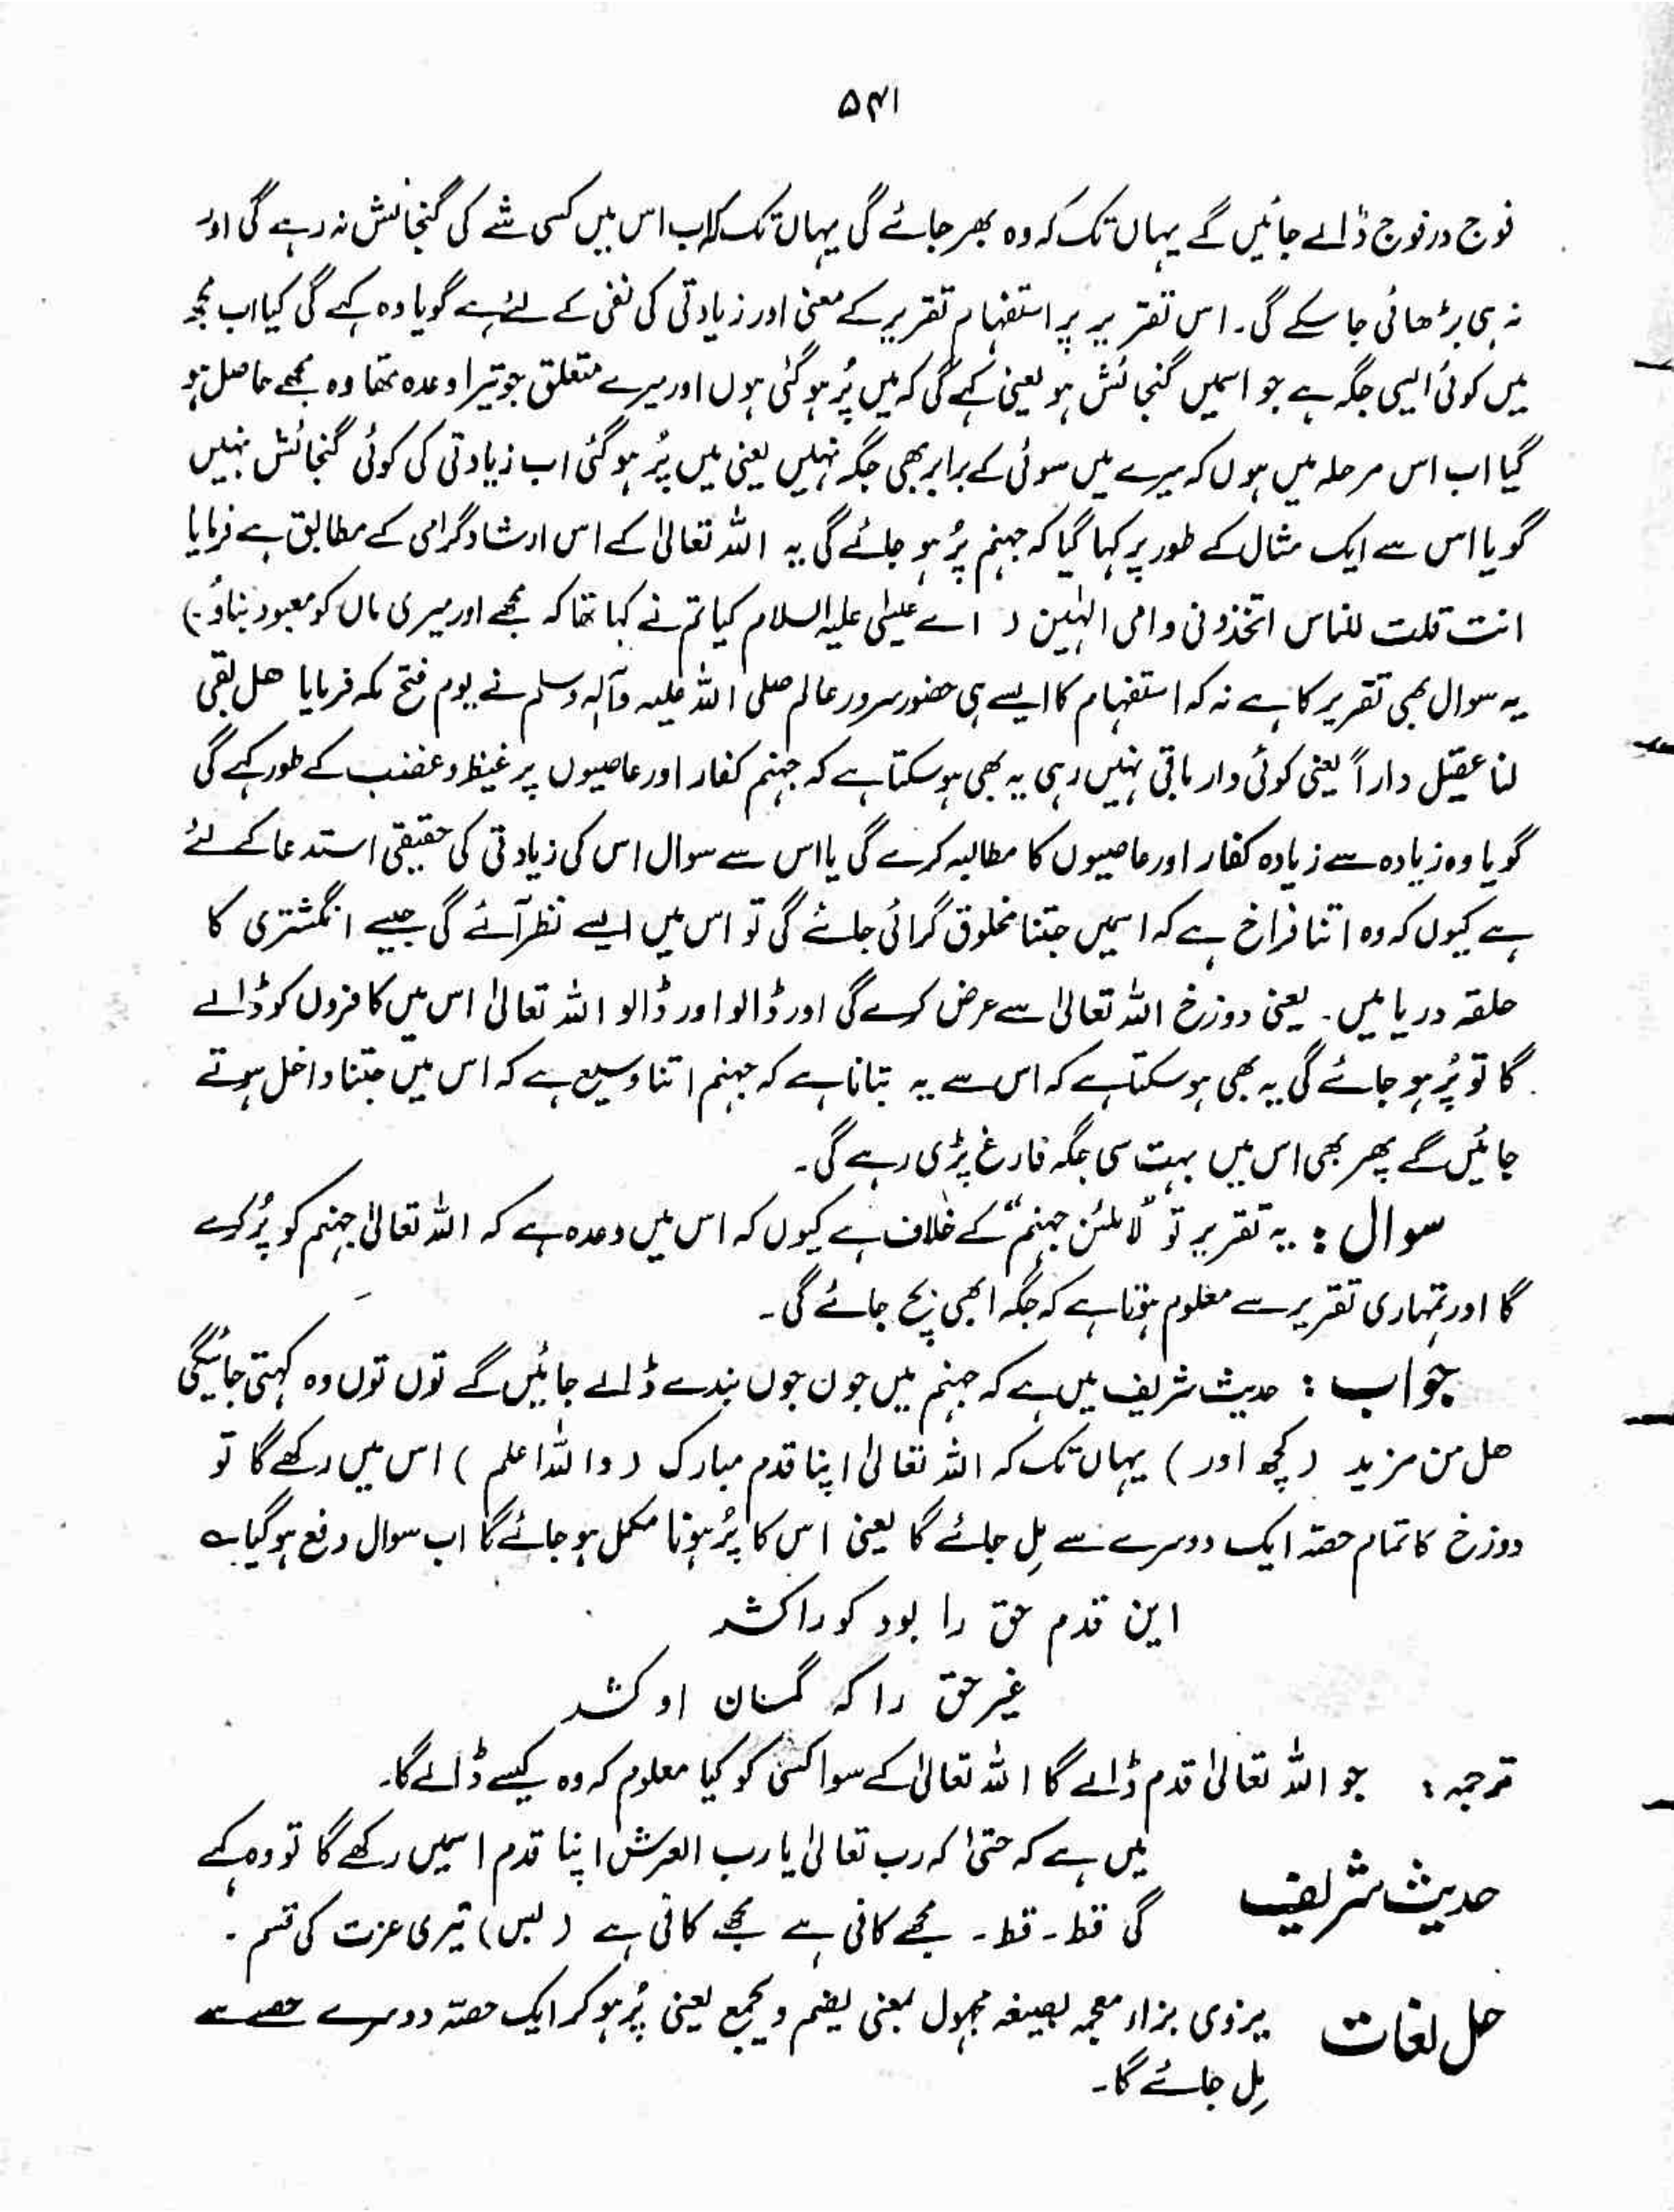 ۵۴۱
فوج در فوج ڈالے جائیں گے یہاں تک کہ وہ بھر جائے گی یہاں تک کہ اب اس میں کسی شے کی گنجائش نہ رہے گی اور
نہ ہی بڑھائی جا سکے گی۔ اس تقریر پر استفہام تقریر کے معنیٰ اور زیادتی کی نفی کے لئے ہے گویا وہ کہے گی کیا اب مجھ
میں کوئی ایسی جگہ ہے جو اسمیں گنجائش ہو یعنی کہے گی کہ میں پُر ہو گئی ہوں اور میرے متعلق جو تیرا وعدہ تھا وہ مجھے حاصل ہو
گیا اب اس مرحلہ میں ہوں کہ میرے میں سوئی کے برابر بھی جگہ نہیں یعنی میں پُر ہو گئی اب زیادتی کی کوئی گنجائش نہیں
گویا اس سے ایک مثال کے طور پر کہا گیا کہ جہنم پُر ہو جائے گی یہ اللہ تعالیٰ کے اس ارشاد گرامی کے مطابق ہے فرمایا
انت قلت للناس اتخذونی وامی الٰہین ( اے عیسٰی علیہ السلام کیا تم نے کہا تھا کہ مجھے اور میری ماں کو معبود بناؤ۔)
یہ سوال بھی تقریر کا ہے نہ کہ استفہام کا ایسے ہی حضور سرور عالم صلی اللہ علیہ وآلہ وسلم نے یوم فتح مکہ فرمایا ھل بقی
لنا عقیل داراً یعنی کوئی دار باقی نہیں رہی یہ بھی ہو سکتا ہے کہ جہنم کفار اور عاصیوں پر غیظ و غضب کے طور کہے گی
گویا وہ زیادہ سے زیادہ کفار اور عاصیوں کا مطالبہ کرے گی یا اس سے سوال اس کی زیادتی کی حقیقی استدعا کے لئے
ہے کیوں کہ وہ اتنا فراخ ہے کہ اسمیں جتنا مخلوق گرائی جائے گی تو اس میں ایسے نظر آئے گی جیسے انگشتری کا
حلقہ دریا میں۔ یعنی دوزخ اللہ تعالیٰ سے عرض کرے گی اور ڈالو اور ڈالو اللہ تعالیٰ اس میں کافروں کو ڈالے
گا تو پُر ہو جائے گی یہ بھی ہو سکتا ہے کہ اس سے یہ بتانا ہے کہ جہنم اتنا وسیع ہے کہ اس میں جتنا داخل ہوتے
جائیں گے پھر بھی اس میں بہت سی جگہ فارغ پڑی رہے گی۔
سوال : یہ تقریر تو "لاملئن جہنم" کے خلاف ہے کیوں کہ اس میں وعدہ ہے کہ اللہ تعالیٰ جہنم کو پُر کرے
گا اور تمہاری تقریر سے معلوم ہوتا ہے کہ جگہ ابھی بچ جائے گی۔
جواب : حدیث شریف میں ہے کہ جہنم میں جون جوں بندے ڈالے جائیں گے توں توں وہ کہتی جائیگی
ھل من مزید ( کچھ اور ) یہاں تک کہ اللہ تعالیٰ اپنا قدم مبارک ( واللہ اعلم ) اس میں رکھے گا تو
دوزخ کا تمام حصہ ایک دوسرے سے مل جائے گا یعنی اس کا پُر ہونا مکمل ہو جائے گا اب سوال دفع ہو گیا ؎
این قدم حق را بود کو را کشد
غیر حق را کہ گمان او کشد
ترجمہ : جو اللہ تعالیٰ قدم ڈالے گا اللہ تعالیٰ کے سوا کسی کو کیا معلوم کہ وہ کیسے ڈالے گا۔
حدیث شریف میں ہے کہ حتیٰ کہ رب تعالیٰ یا رب العرش اپنا قدم اسمیں رکھے گا تو وہ کہے
گی قط۔ قط۔ مجھے کافی ہے مجھے کافی ہے ( بس ) تیری عزت کی قسم۔
حل لغات یزوی بزاء معجمہ بصیغہ مجہول بمعنی یضم و یجمع یعنی پُر ہو کر ایک حصّہ دوسرے حصے سے
مل جائے گا۔